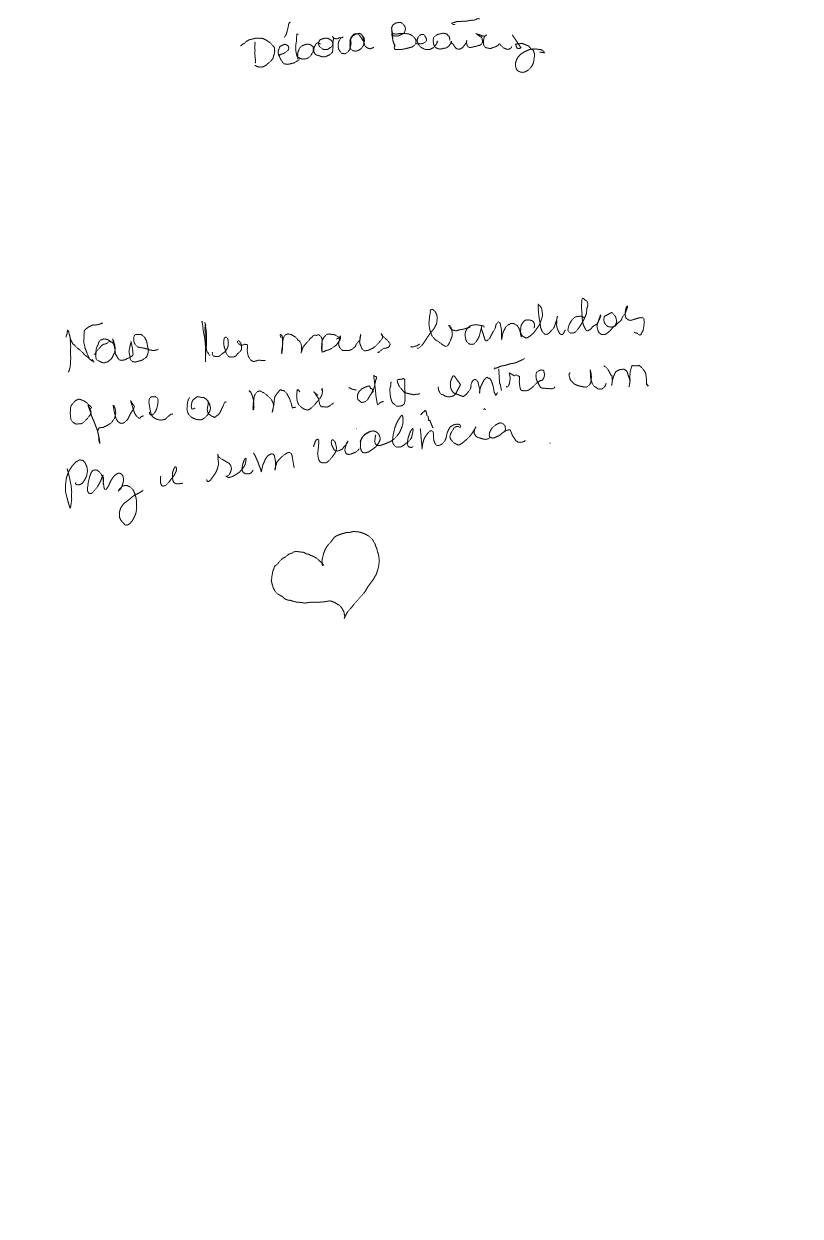 Débora Beatriz
Nao ter mais bandidos
que o mu do entre um
paz e sem violência.